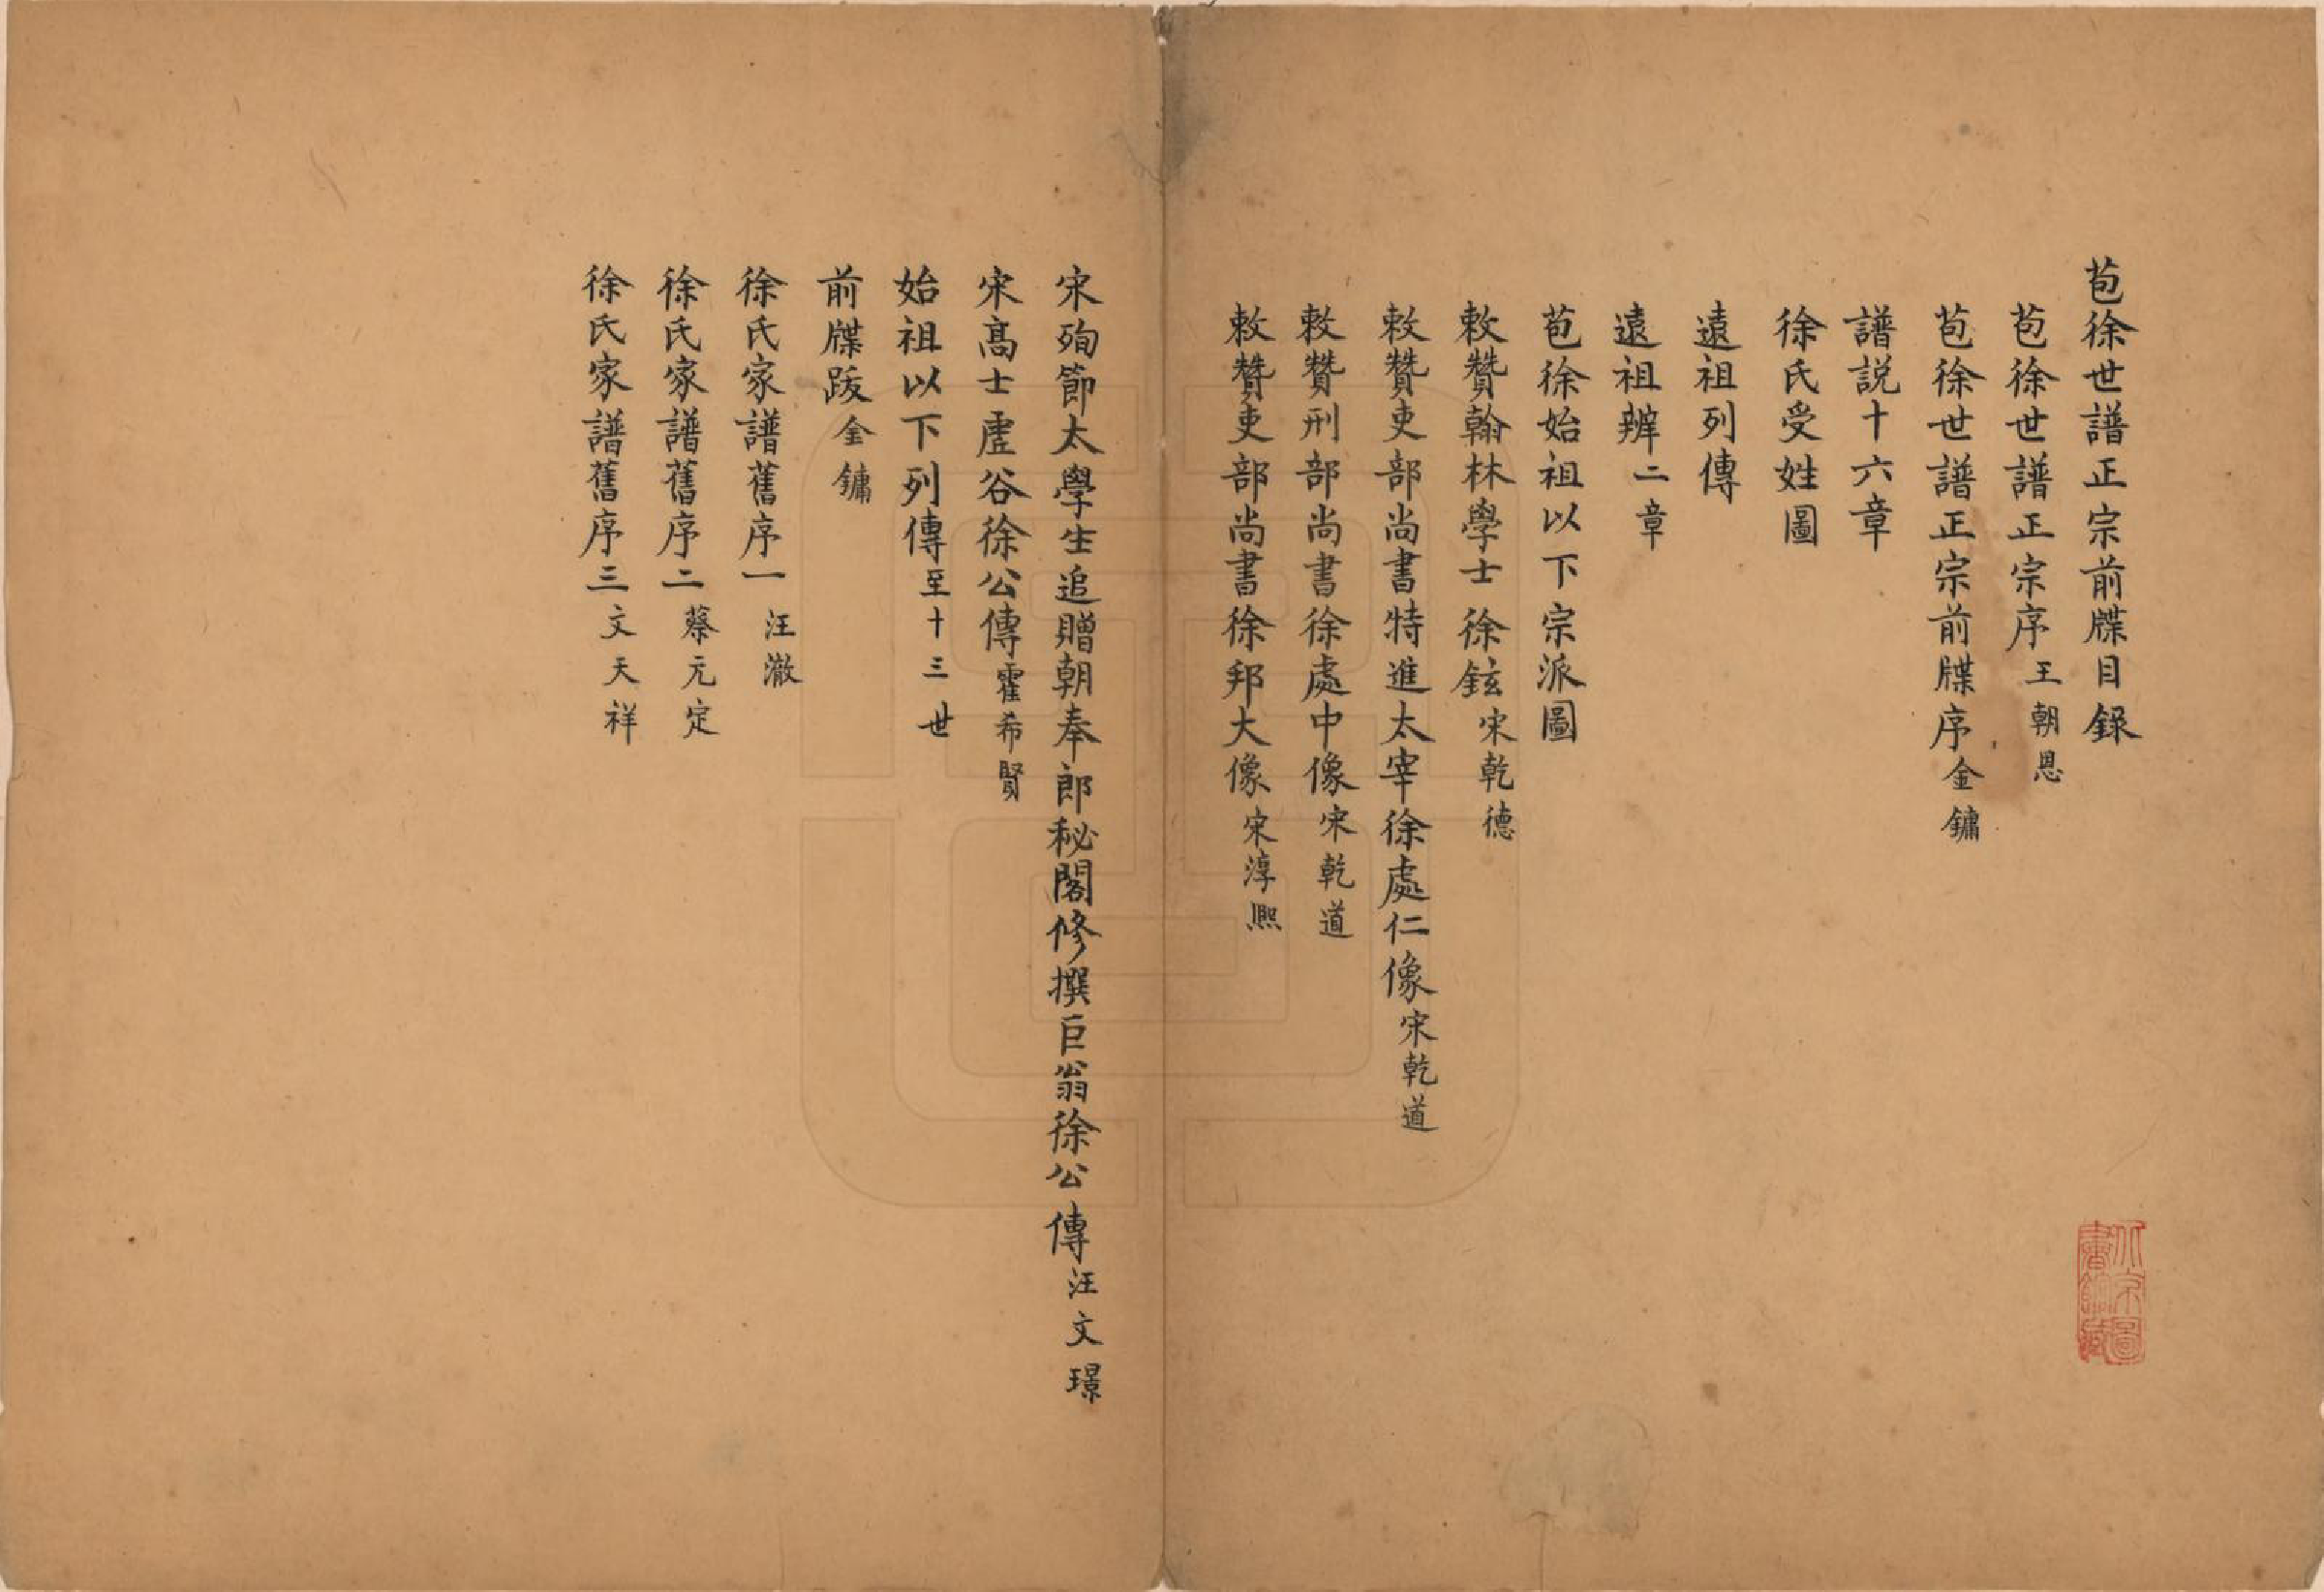 苞徐世譜正宗前牒目錄
苞徐世譜正宗序王朝恩
苞徐世譜正宗前牒序金鏞
譜説十六章
徐氏受姓圖
遠祖列傳
遠祖辨二章
苞徐始祖以下宗派圖
敕贊翰林學士徐鉉宋乾德
敕贊吏部尚書特進太宰徐處仁像宋乾道
敕贊刑部尚書徐處中像宋乾道
敕贊吏部尚書徐邦大像宋淳熙
宋殉節太學生追贈朝奉郎秘閣修撰巨翁徐公傳汪文璟
宋高士虛谷徐公傳霍希賢
始祖以下列傳至十三世
前牒跋金鏞
徐氏家譜舊序一汪澈
徐氏家譜舊序二蔡元定
徐氏家譜舊序三文天祥
北京圖書館藏